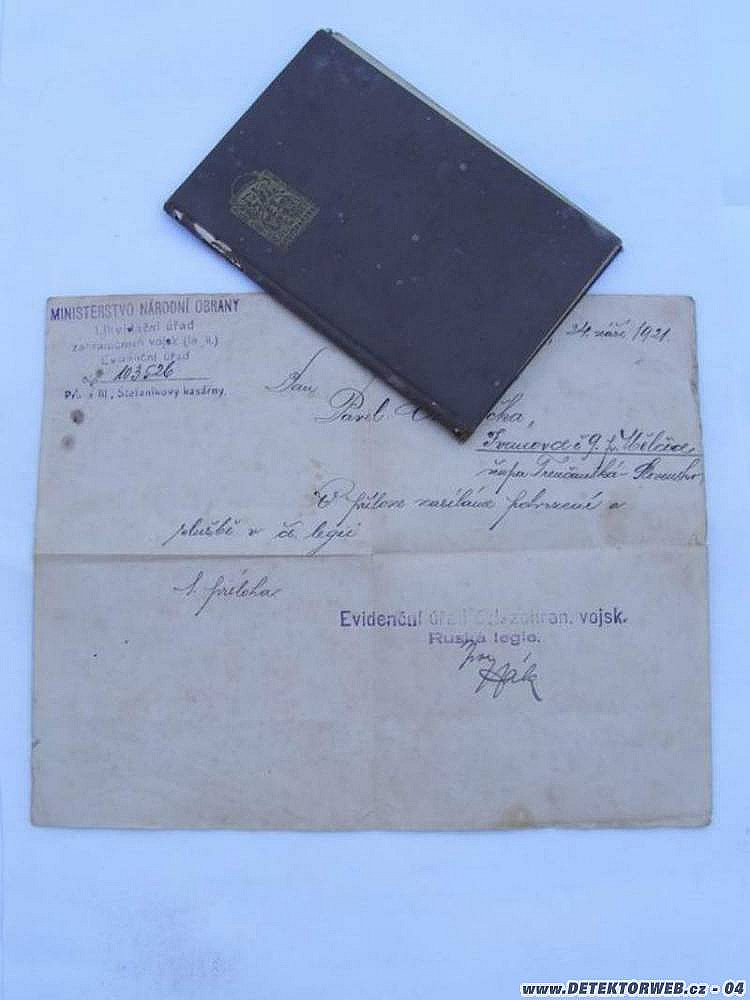 MINISTERSTVO NÁRODNÍ OBRANY
Likvidační úřad
zahraničních vojsk
Evidenční úřad
103526
III., Štefanikovy kasárny.
24. září 1921.
Pan
Pavel
Ivanová č 9. p.
župa Trenčanská - Slovensko
V příloze zasíláme potvrzení o
službě v čs. legii
1. příloha
Evidenční úřad vojsk.
Ruská legie.
www.DETEKTORWEB.cz - 04